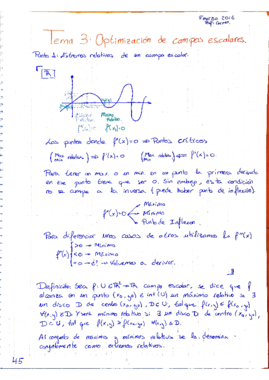 Febrero 2016
Tema 3: Optimización de campos escalares.
Punto 1: Extremos relativos de un campo escalar.
Máximo Relativo
Mínimo Relativo
f'(x)=0 f'(x)=0
Los puntos donde f'(x)=0 => Puntos críticos
(Max Min relativo) => f'(x)=0 (Max Min relativo) <≠ f'(x)=0
Para tener un max. o un min en un punto la primera derivada
en ese punto tiene que ser 0. Sin embargo, esta condición
no se cumple a la inversa (puede haber punto de inflexión)
f'(x)=0
Máximo
Mínimo
Punto de Inflexión
Para diferenciar unos casos de otros utilizamos la f''(x)
f''(x)
>0 → Mínimo
<0 → Máximo
=0 → Volvemos a derivar.
Definición: Sea f: U⊂ℝ²→ℝ campo escalar, se dice que f
alcanza en un punto (x₀,y₀) ∈ int(U) un máximo relativo si ∃
un disco D de centro (x₀,y₀), D⊂U, tal que f(x,y) ≤ f(x₀,y₀)
∀(x,y)∈D. Y será mínimo relativo si ∃ un disco D de centro (x₀,y₀),
D⊂U, tal que f(x,y) ≥ f(x₀,y₀) ∀(x,y)∈D.
Al conjunto de máximos y mínimos relativos se les denomina
conjuntamente como extremos relativos.
45